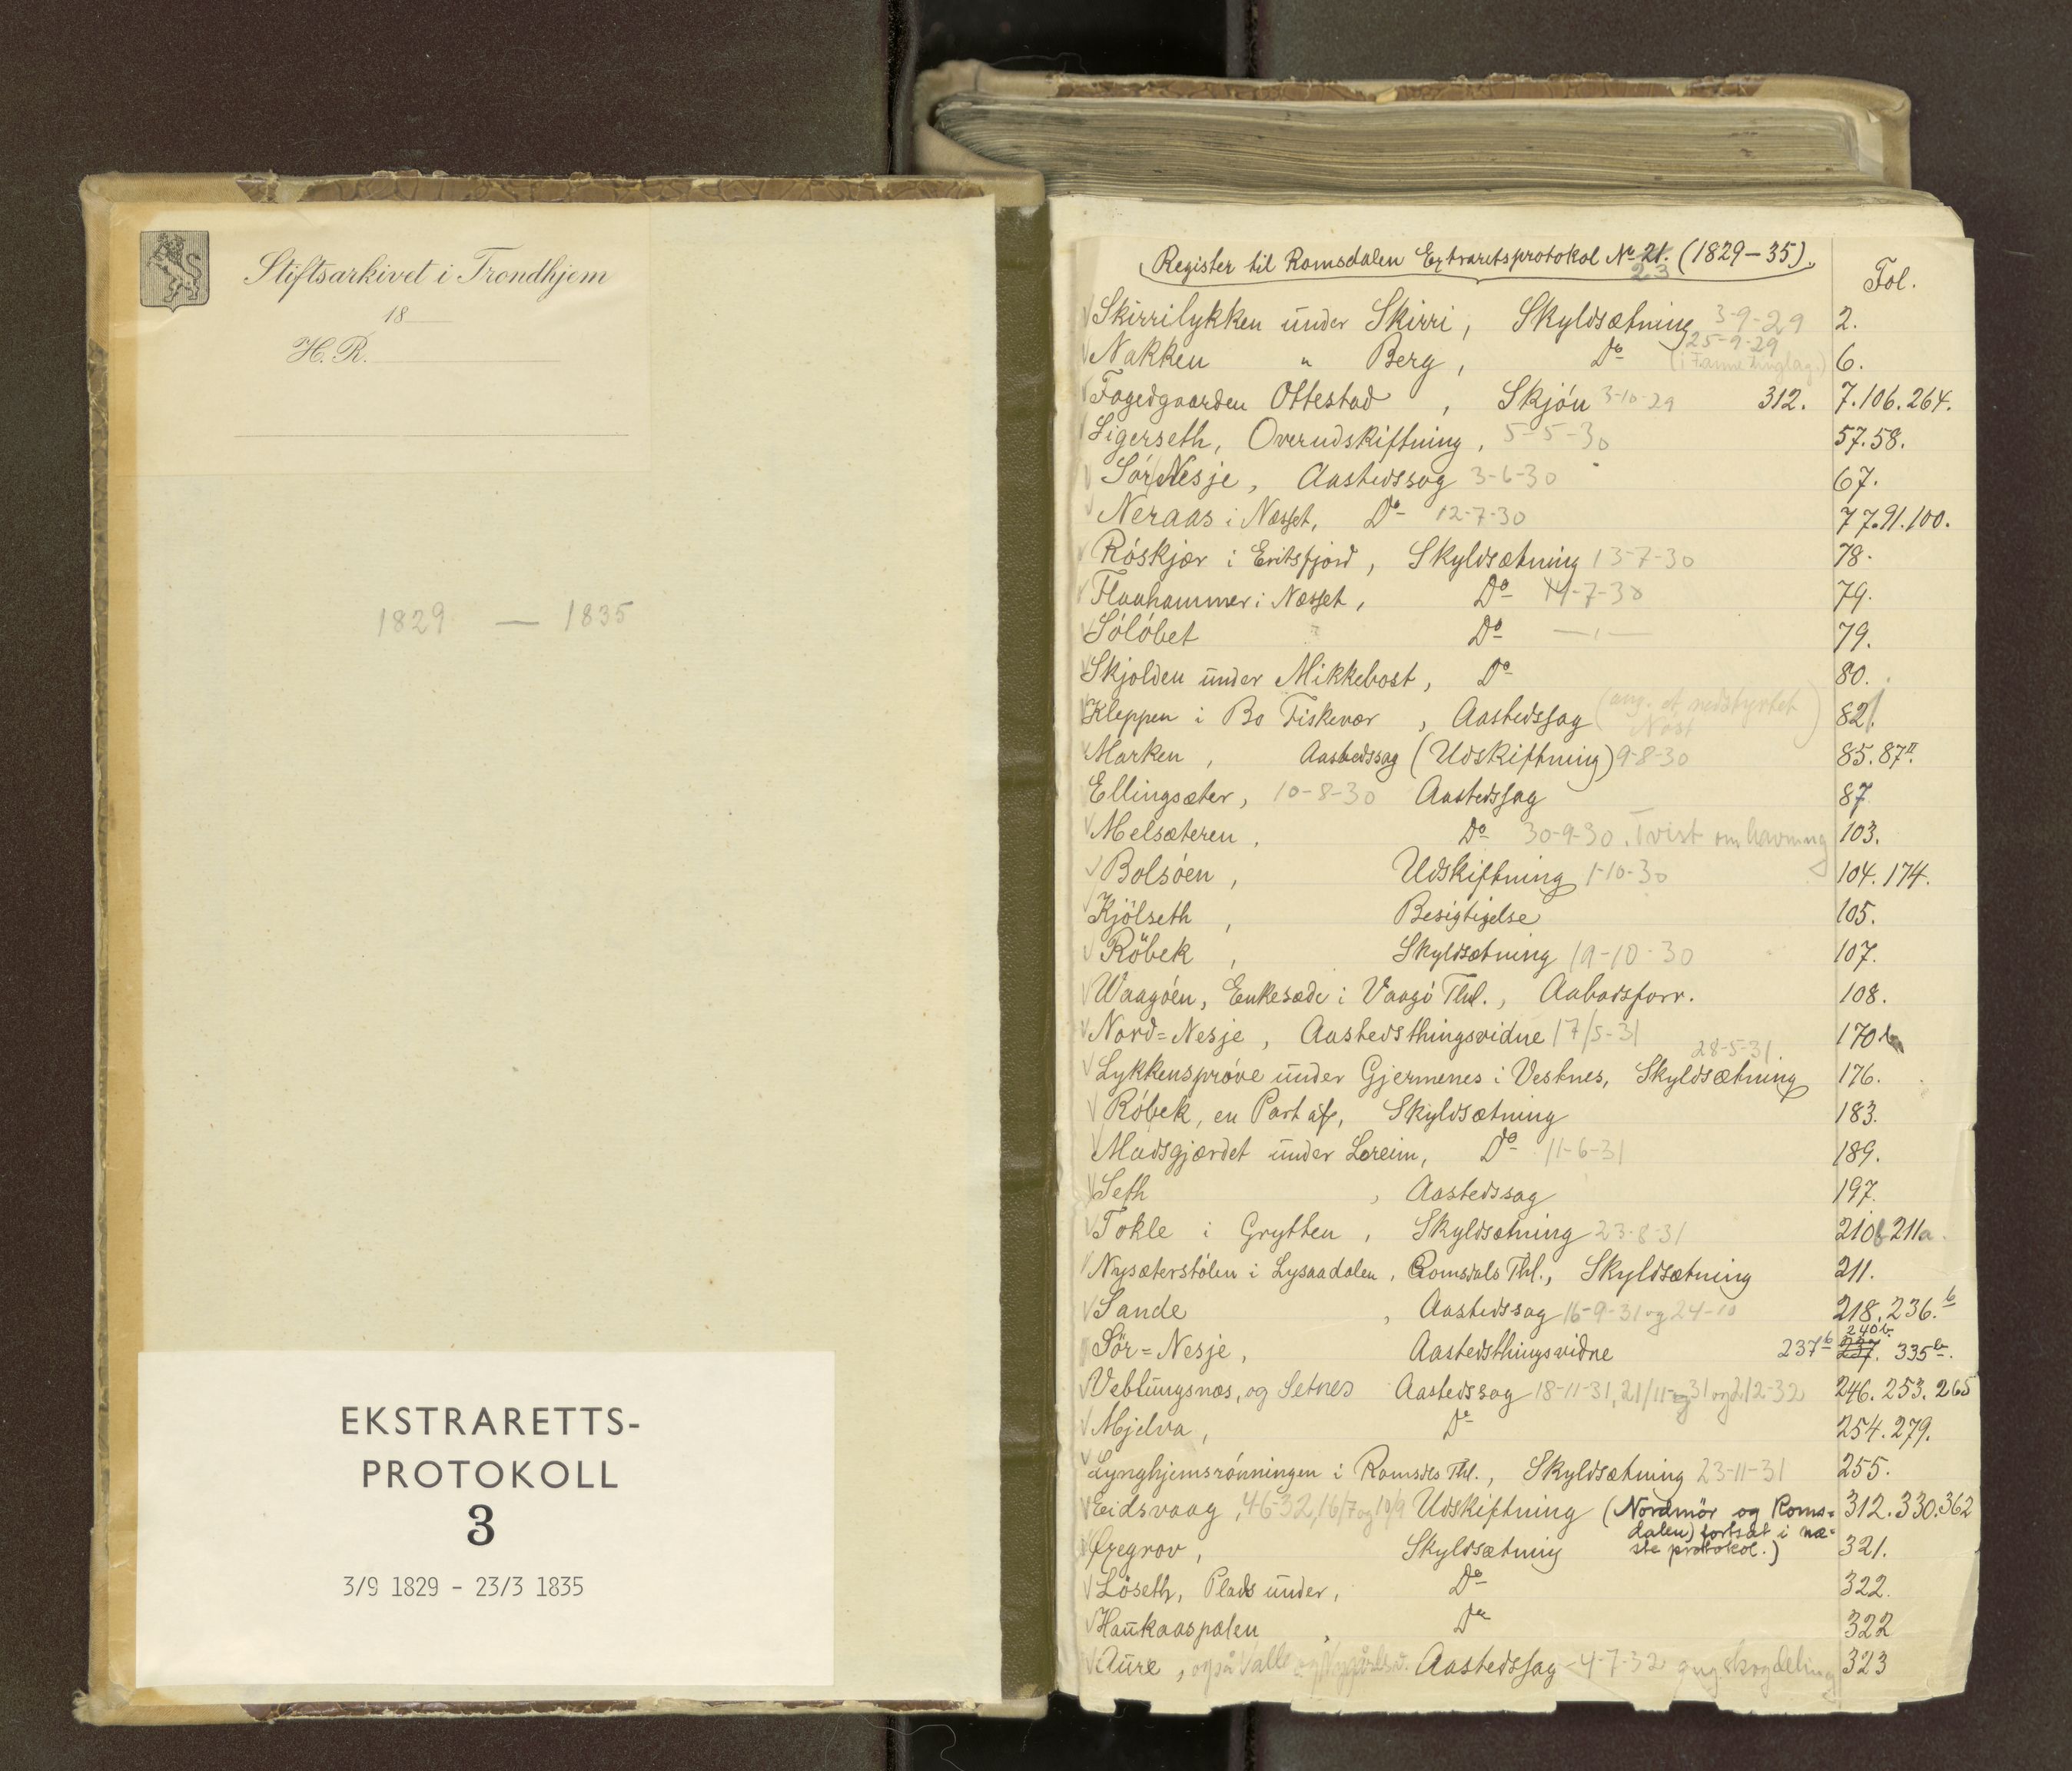 Stiftsarkivet i Trondhjem
18
H. R.
1829 — 1835
EKSTRARETTS-
PROTOKOLL
3
3/9 1829 - 23/3 1835
Register til Romsdalen Extraretsprotokol No 21. (1829-35).
23
Fol.
Skirrilykken under Skirri, Skyldsætning 3-9-29 2.
Nakken " Berg, Do 25-9-29 (i Fanne Tinglag.) 6.
Fogedgaarden Ottestad, Skjön 3-10-29 312. 7.106.264.
Ligerseth, Overudskiftning, 5-5-30 57.58.
Sör Nesje, Aastedssag 3-6-30 67.
Neraas i Næsset, Do 12-7-30 77.91.100.
Röskjær i Eritsfjord, Skyldsætning 13-7-30 78.
Flaahammer i Næsset, Do 14-7-30 79.
Sölöbet Do —"— 79.
Skjolden under Mikkelbost, Do 80.
Kleppen i Bo Fiskevær, Aastedssag (ang. et nedstyrtet Nøst) 82.
Marken, Aastedssag (Udskiftning) 9-8-30 85.87II.
Ellingsæter, 10-8-30 Aastedssag 87
Melsæteren, Do 30-9-30. Tvist om havning 103.
Bolsöen, Udskiftning 1-10-30 104.174.
Kjölseth, Besigtigelse 105.
Röbek, Skyldsætning 19-10-30 107.
Waagöen, Enkesæde i Vaagö Thl., Aabodsforr. 108.
Nord=Nesje, Aastedsthingsvidne 17/5-31 170b
Lykkenspröve under Gjermenes i Vestnes, Skyldsætning 28-5-31. 176.
Röbek, en Part af, Skyldsætning 183.
Madsgjærdet under Loreim, Do 11-6-31 189.
Seth, Aastedssag 197.
Tokle i Grytten, Skyldsætning 23-8-31 210b 211a.
Nysæterstölen i Lysaadalen, Romsdals Thl., Skyldsætning 211.
Sande, Aastedssag 16-9-31 og 24-10 218.236.b
Sör=Nesje, Aastedsthingsvidne 237b 237. 240b. 335b.
Veblungsnæs, og Setnes Aastedssag 18-11-31, 21/11-31 og 2/2-32 246.253.265
Mjelva, Do 254.279.
Lynghjemsrönningen i Romsdls Thl., Skyldsætning 23-11-31 255.
Eidsvaag, 4-6-32, 16/7 og 10/9 Udskiftning (Nordmör og Roms- 312.330.362
dalen) fortsat i næ-
ste protokol.)
Gregrov, Skyldsætning 321.
Löseth, Plads under, Do 322.
Haukaaspælen, Do 322
Aure, også Valle Aastedssag 4-7-32 ang skogdeling 323